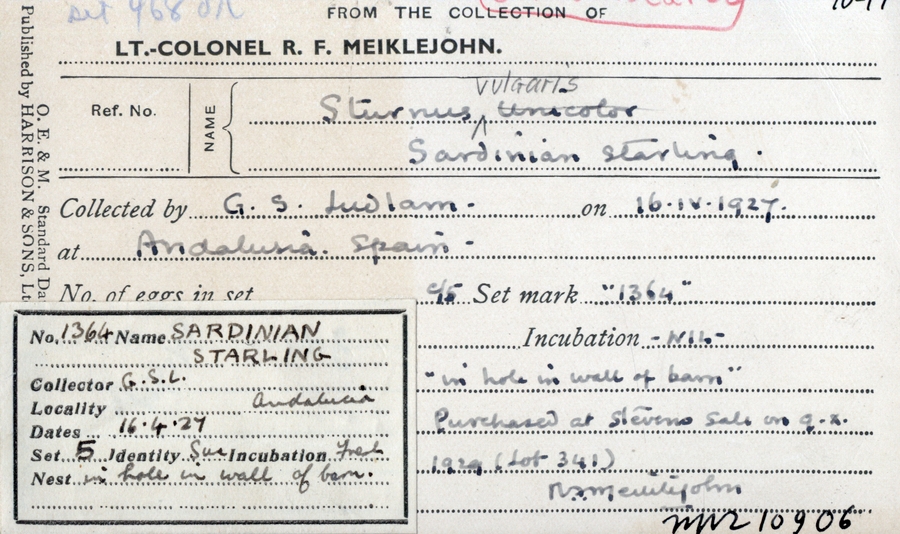 set 468
FROM THE COLLECTION OF
LT.-COLONEL R. F. MEIKLEJOHN.
Published by HARRISON & SONS, Lt
O. E. & M. Standard Da
Ref. No.
NAME
vulgaris
Sturnus unicolor
Sardinian starling.
Collected by G. S. Ludlam. on 16.IV.1927.
at Andalusia. Spain.
No. of eggs in set c/5 Set mark "1364"
Incubation -NIL-
"in hole in wall of barn"
Purchased at Stevens Sale on 9.X.
1929 (Lot 341)
RFMeiklejohn
No. 1364 Name SARDINIAN
STARLING
Collector G.S.L.
Locality Andalucia
Dates 16.4.27
Set 5 Identity Sure Incubation Fresh
Nest in hole in wall of barn.
10906